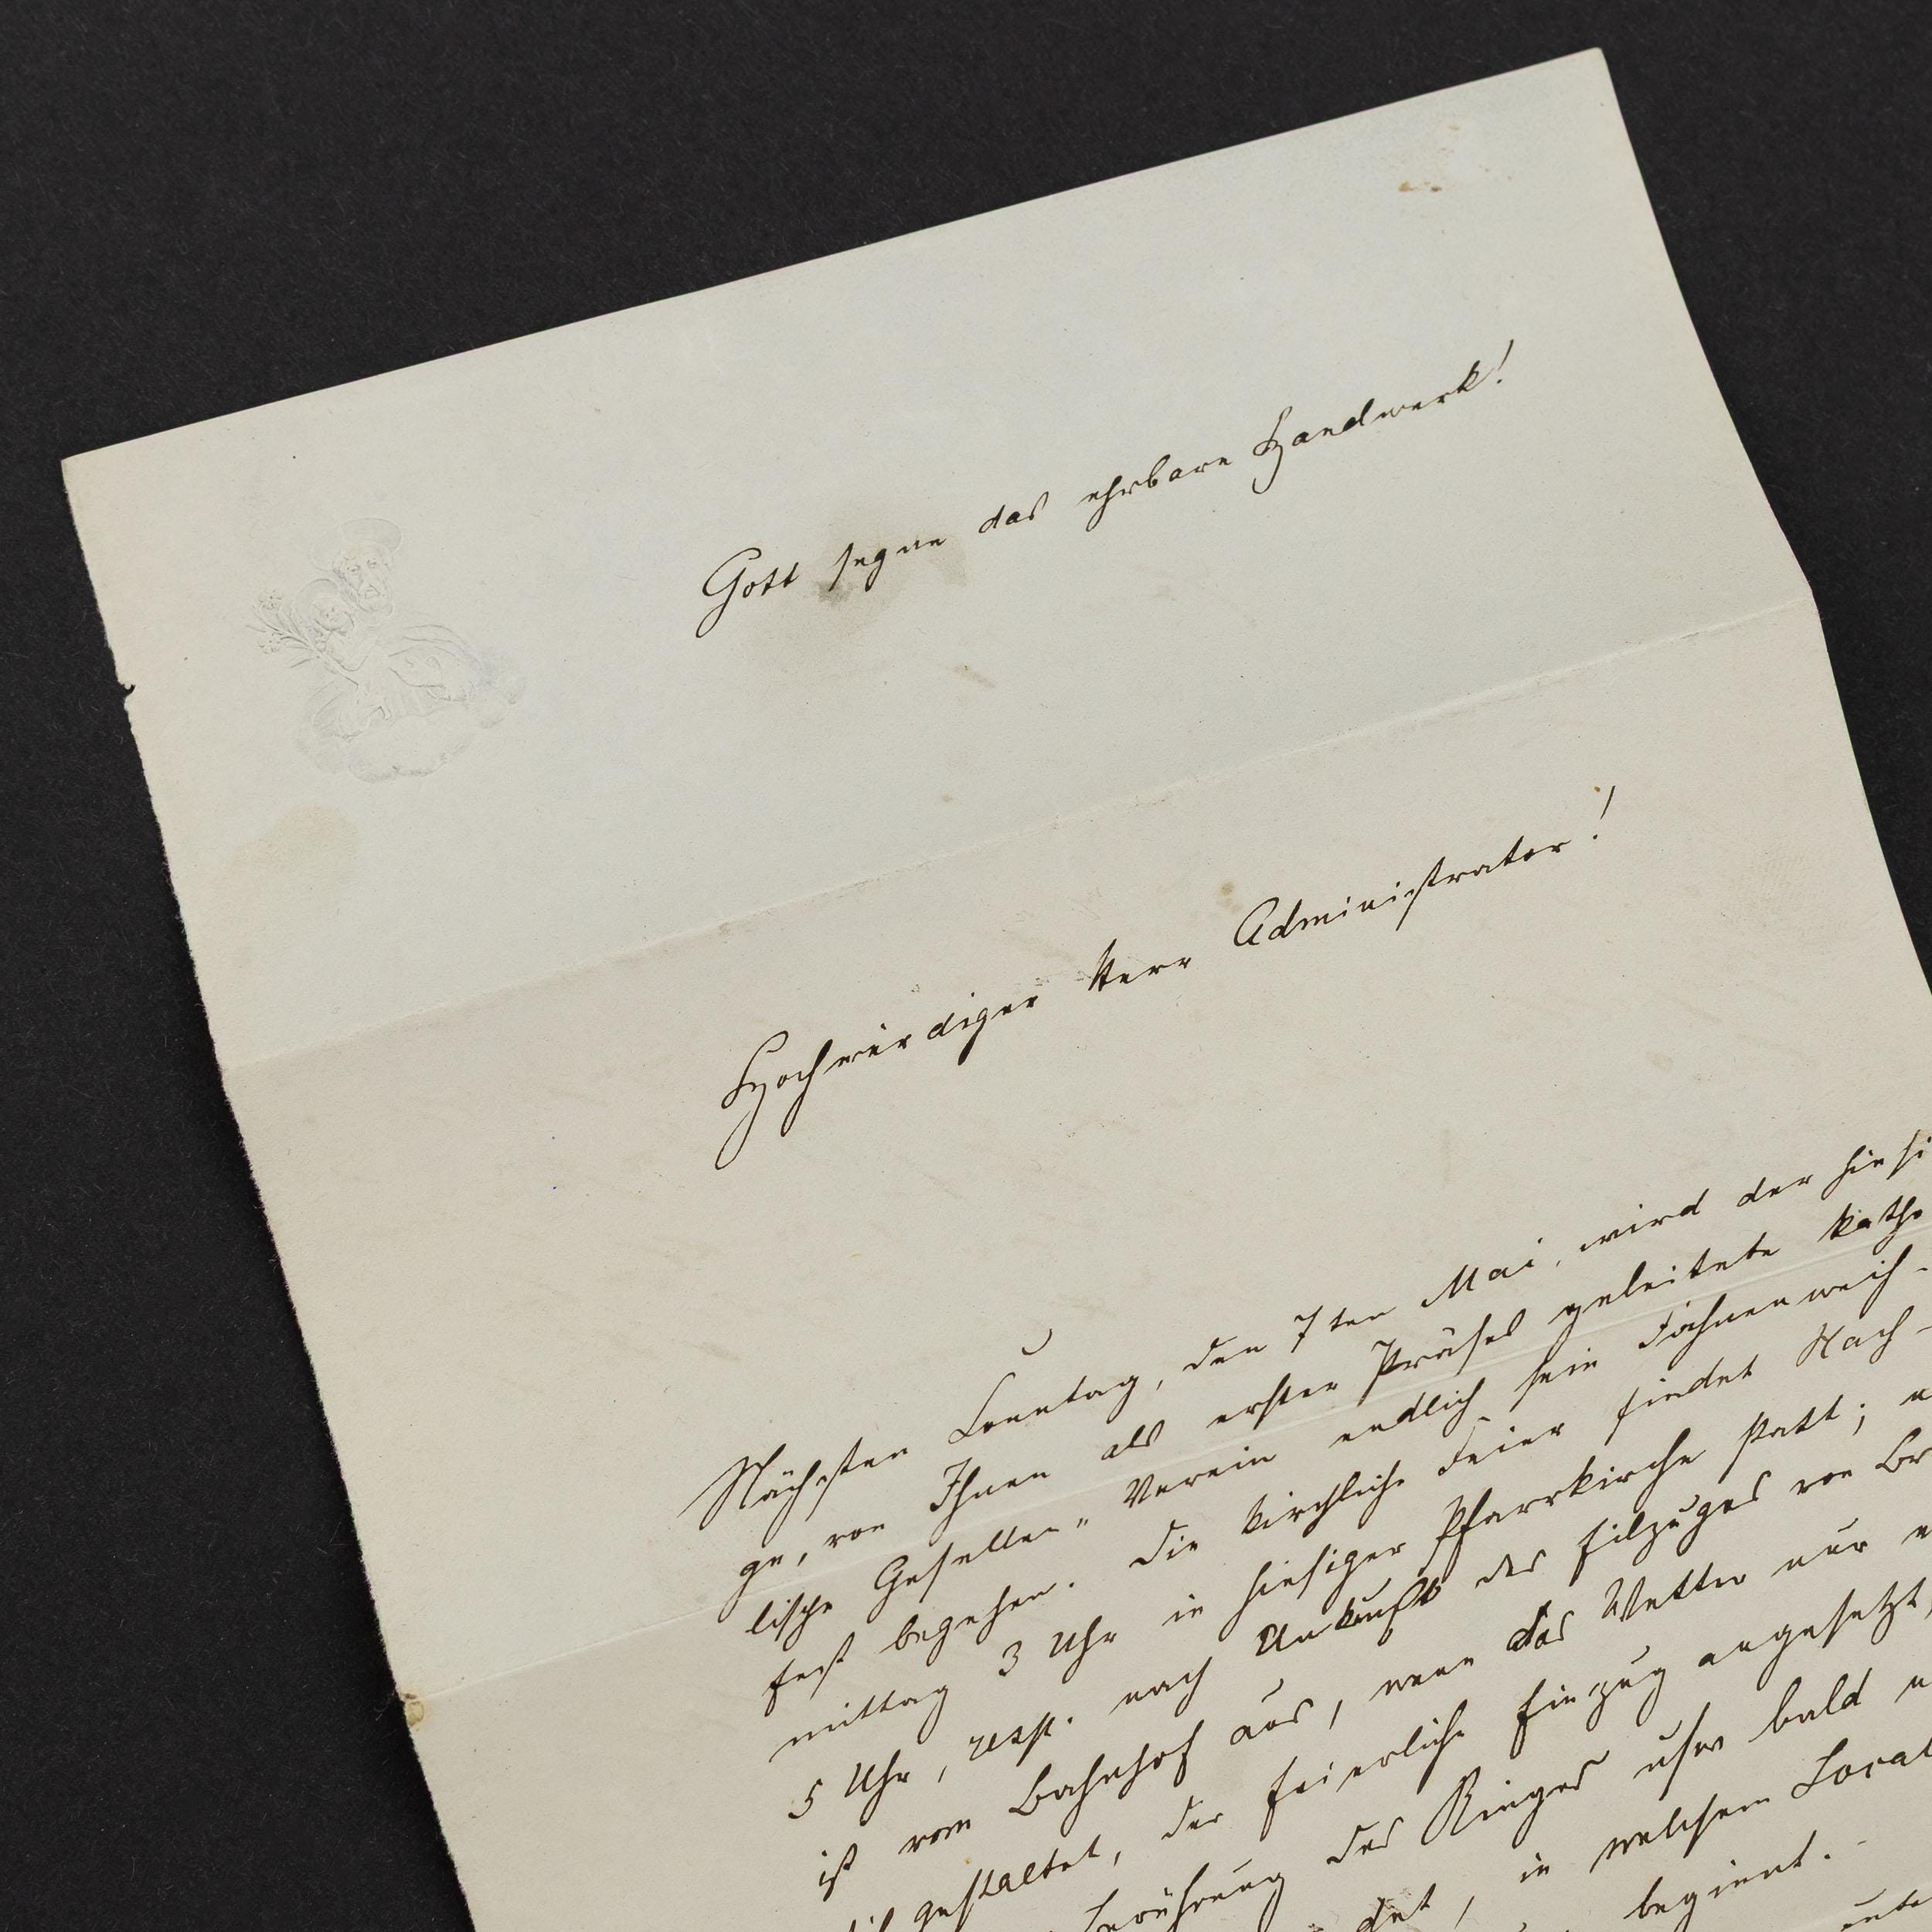 Gott segne das ehrbare Handwerk!
Hochwürdiger Herr Administrator!
Nächsten Sonntag, den 7ten Mai, wird der hiesi
ge, von Ihnen als erster Präses geleitete katho
lische Gesellen-Verein endlich sein Fahnenweih-
fest begehen. Die kirchliche Feier findet Nach-
mittag 3 Uhr in hiesiger Pfarrkirche statt;
5 Uhr, resp. nach Ankunft des Eilzuges von Br
ist vom Bahnhof aus, wenn das Wetter nur
gestaltet, der feierliche Einzug angesetzt,
Berührung des Ringes usw bald
det, in welchem Local
beginnt.